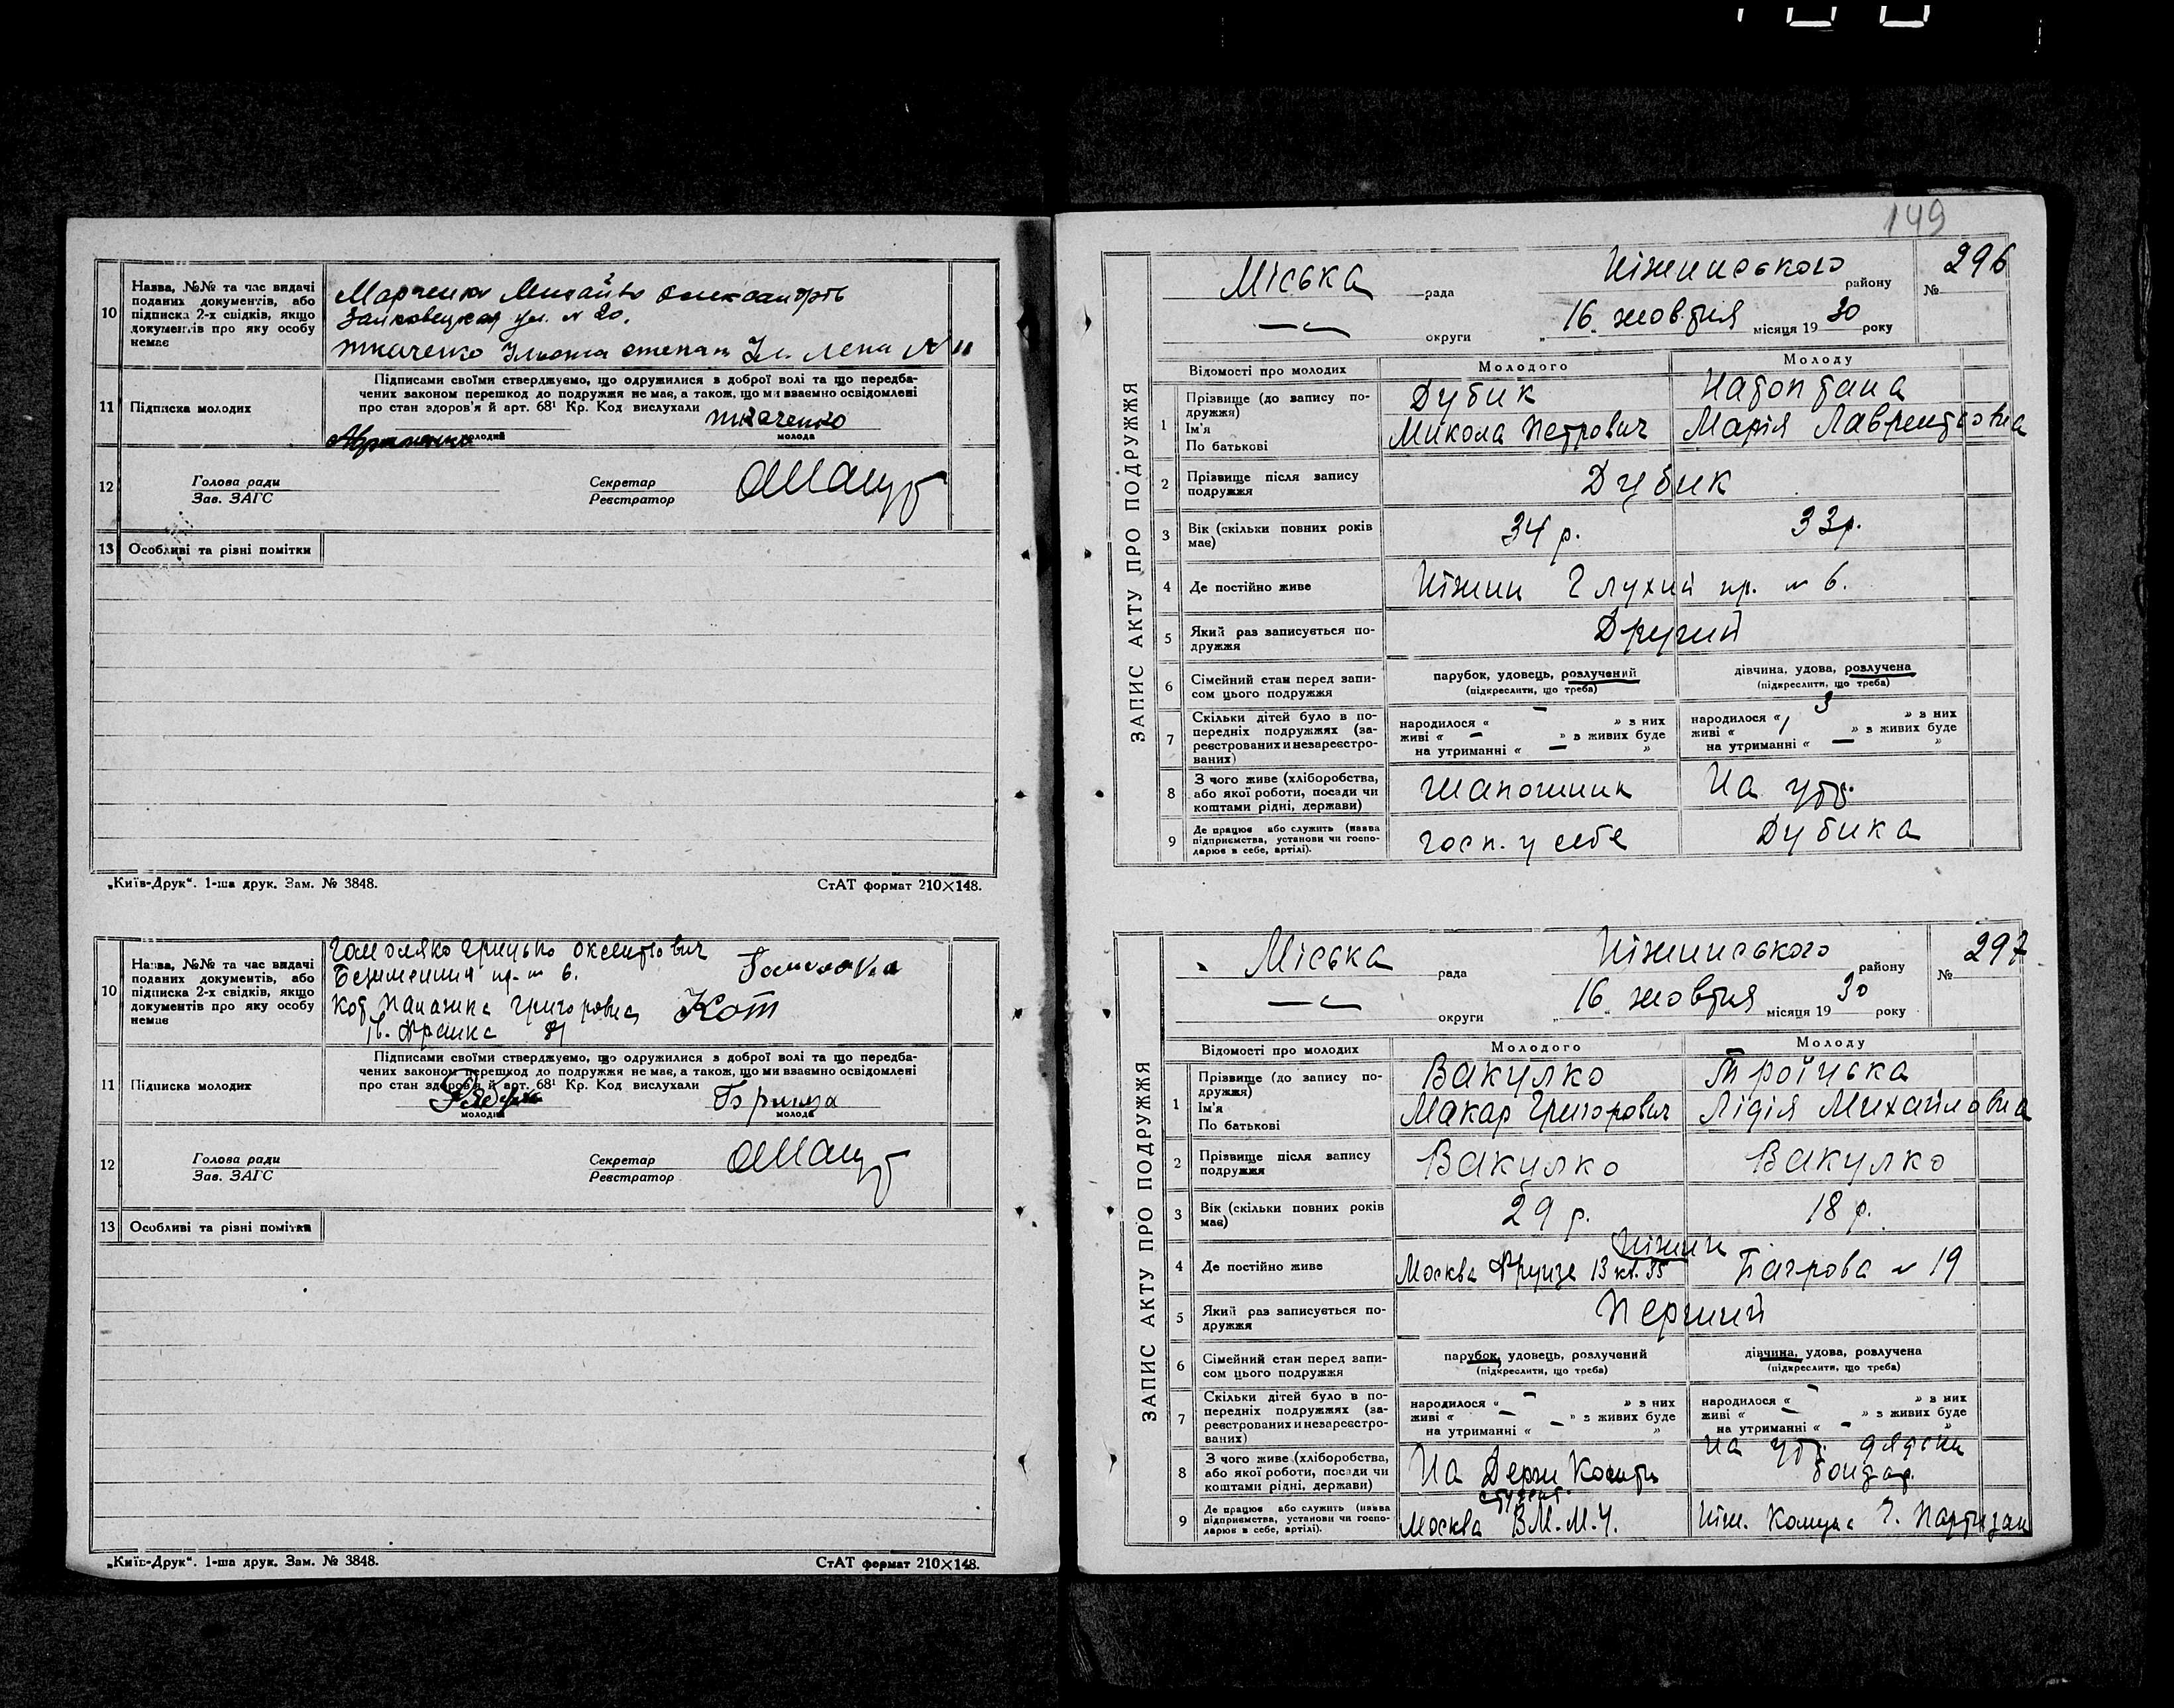 10
Назва, №№ та час видачі
поданих документів, або
підписка 2-х свідків, якщо
документів про яку особу
немає
Марченко Михайло
ул. N 20.
Ткаченко N 11
11
Підписка молодих
Підписами своїми стверджуємо, що одружилися в доброї волі та що передба-
чених законом перешкод до подружжя не має, а також, що ми взаємно освідомлені
про стан здоров'я й арт. 68¹ Кр. Код вислухали
Ткаченко
молодий
молода
12
Голова ради
Зав. ЗАГС
Секретар
Реєстратор
13
Особливі та різні помітки
„Київ-Друк“. 1-ша друк. Зам. № 3848.
СтАТ формат 210×148.
10
Назва, №№ та час видачі
поданих документів, або
підписка 2-х свідків, якщо
документів про яку особу
немає
Грицько Оксентьович
Безименний пр. № 6.
Кот Параска Григоровна Кот
Ів. Франка
11
Підписка молодих
Підписами своїми стверджуємо, що одружилися з доброї волі та що передба-
чених законом перешкод до подружжя не має, а також, що ми взаємно освідомлені
про стан здоров'я й арт. 68¹ Кр. Код вислухали
молодий
молода
12
Голова ради
Зав. ЗАГС
Секретар
Реєстратор
13
Особливі та різні помітки
„Київ-Друк“. 1-ша друк. Зам. № 3848.
СтАТ формат 210×148.
149
ЗАПИС АКТУ ПРО ПОДРУЖЖЯ
Міська рада
Ніжинського району
№ 296
округи
„16“ жовтня місяця 1930 року
Відомості про молодих
Молодого
Молоду
1
Прізвище (до запису по-
дружжя)
Ім'я
По батькові
Дубик
Микола Петрович
Марія Лаврентьовна
2
Прізвище після запису
подружжя
Дубик
3
Вік (скільки повних років
має)
34 р.
33 р.
4
Де постійно живе
Ніжин Глухий пр. № 6.
5
Який раз записується по-
дружжя
Другий
6
Сімейний стан перед запи-
сом цього подружжя
парубок, удовець, розлучений
(підкреслити, що треба)
дівчина, удова, розлучена
(підкреслити, що треба)
7
Скільки дітей було в по-
передніх подружжях (за-
реєстрованих и незареєстро-
ваних)
народилося « – » з них
живі « – » в живих буде
на утриманні « – »
народилося « 3 » з них
живі « » в живих буде
на утриманні « – »
8
З чого живе (хліборобства,
або якої роботи, посади чи
коштами рідні, держави)
Шапошник
На утр.
9
Де працює або служить (назва
підприємства, установи чи госпо-
дарює в себе, артілі).
госп. у себе
Дубика
ЗАПИС АКТУ ПРО ПОДРУЖЖЯ
Міська рада
Ніжинського району
№ 297
округи
„16“ жовтня місяця 1930 року
Відомості про молодих
Молодого
Молоду
1
Прізвище (до запису по-
дружжя)
Ім'я
По батькові
Вакулко
Макар Григорович
Троїцька
Лідія Михайловна
2
Прізвище після запису
подружжя
Вакулко
Вакулко
3
Вік (скільки повних років
має)
29 р.
18 р.
4
Де постійно живе
Москва Фрунзе 13 кв. 35
Ніжин
Баг­рова № 19
5
Який раз записується по-
дружжя
Перший
6
Сімейний стан перед запи-
сом цього подружжя
парубок, удовець, розлучений
(підкреслити, що треба)
дівчина, удова, розлучена
(підкреслити, що треба)
7
Скільки дітей було в по-
передніх подружжях (за-
реєстрованих и незареєстро-
ваних)
народилося « – » з них
живі « – » з живих буде
на утриманні « – »
народилося « – » в них
живі « – » з живих буде
на утриманні « – »
8
З чого живе (хліборобства,
або якої роботи, посади чи
коштами рідні, держави)
На Держ Кошти
студент.
На утр. дядьки
бондар.
9
Де працює або служить (назва
підприємства, установи чи госпо-
дарює в себе, артілі).
Москва В.М.М.У.
Ніж. Комуна Ч. Партизан